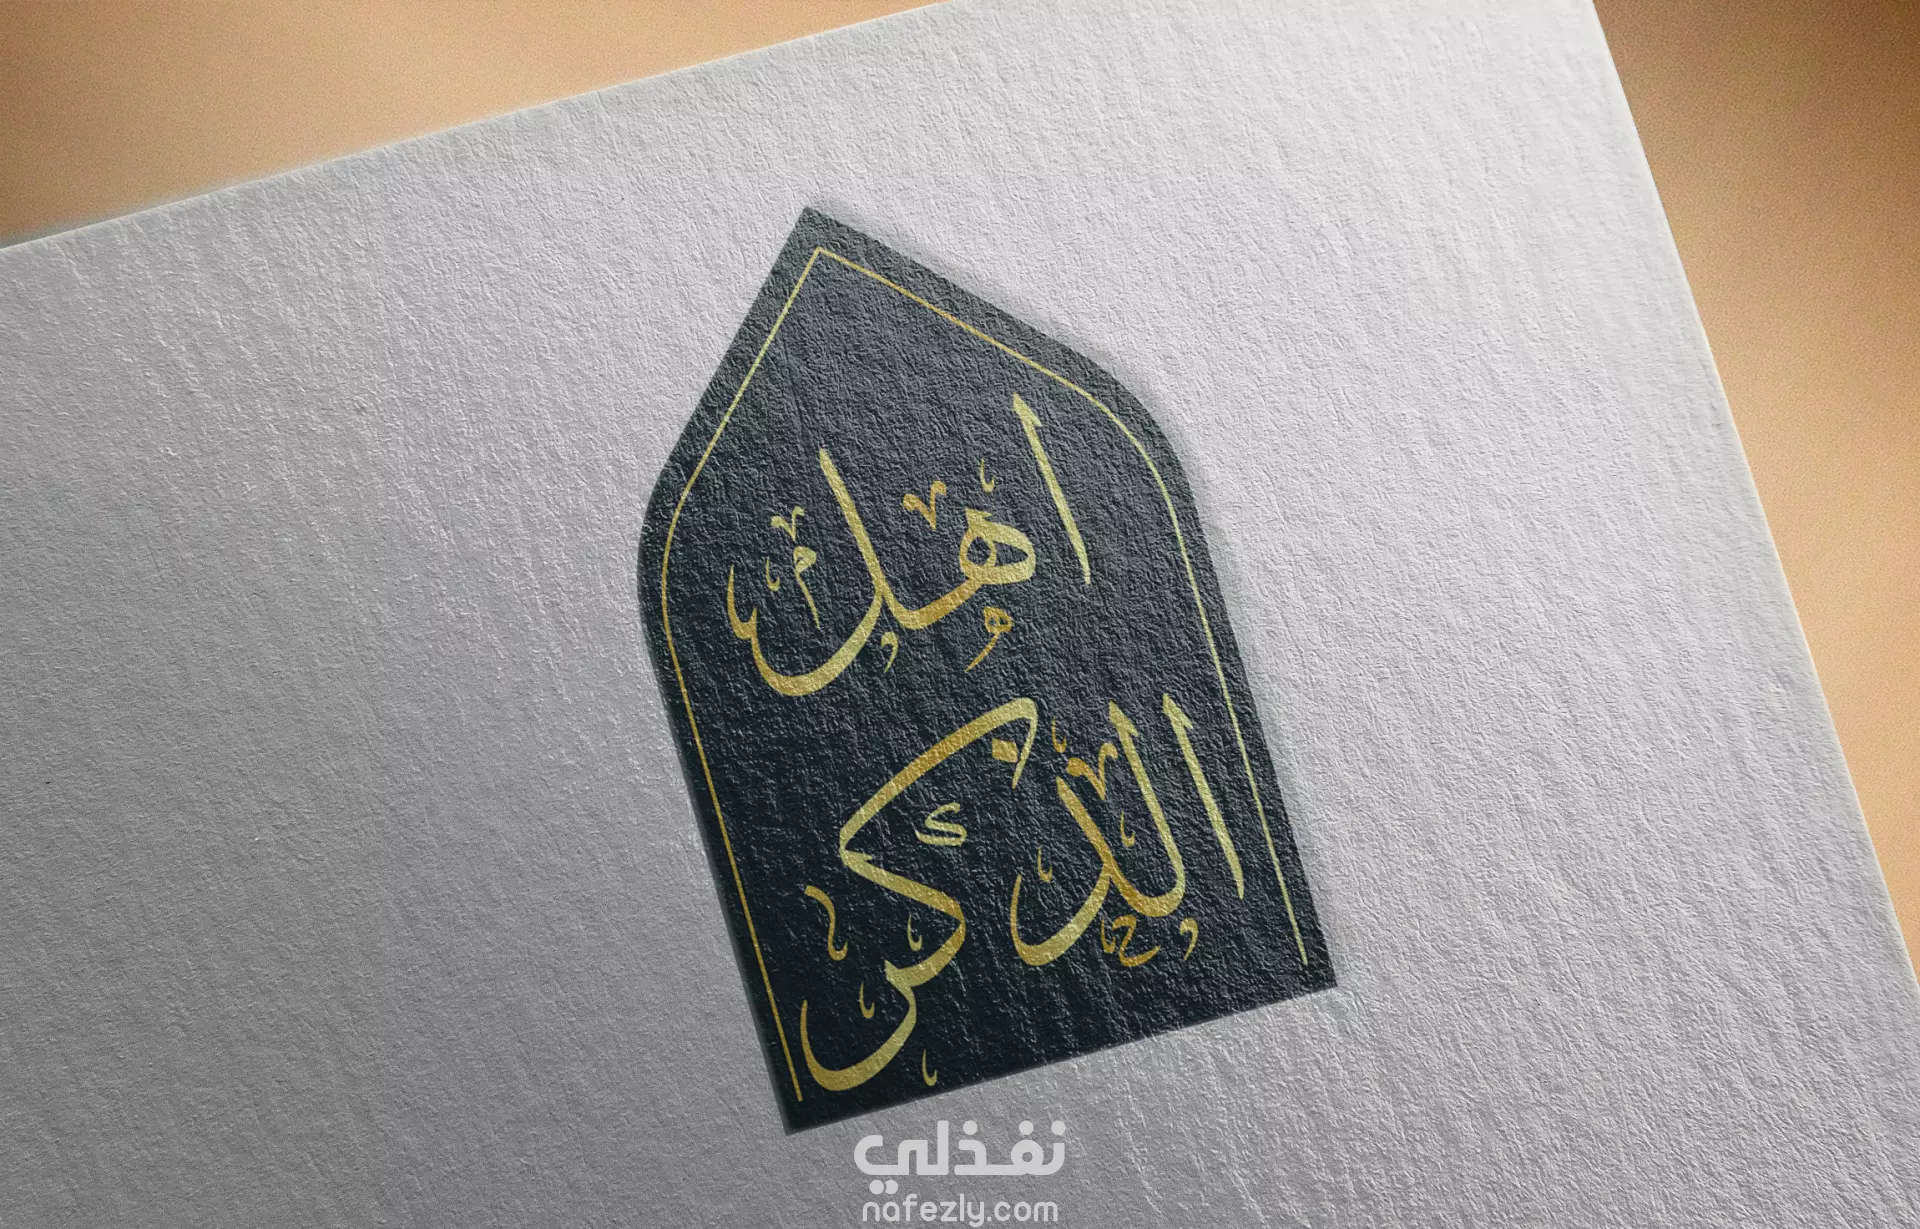 اهل
الذكر
نفذلي
nafezly.com